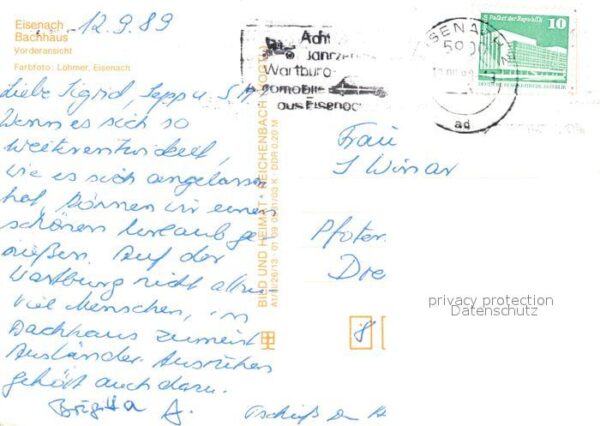 Eisenach
Bachhaus
Vorderansicht
Farbfoto: Löhmer, Eisenach
12.9.89
Liebe Sigrid, Sepp u. S
Wenn es sich so
weiterentwickelt,
wie es sich angelassen
hat, können wir einen
schönen Urlaub ge
nießen. Auf der
Wartburg nicht allzu
viel Menschen, im
Bachhaus zumeist
Ausländer. Ausruhen
gehört auch dazu.
Brigitta A.
BILD UND HEIMAT REICHENBACH (VOGTL)
A1/III/26/13 01 09 03 K DDR 0,20 M
Acht
Jahrze
Wartburg
omobile
aus Eisenac
EISENA
5900
ad
Palast der Republik
10
Frau
S Winar
Pfoten
Dre
8
privacy protection
Datenschutz